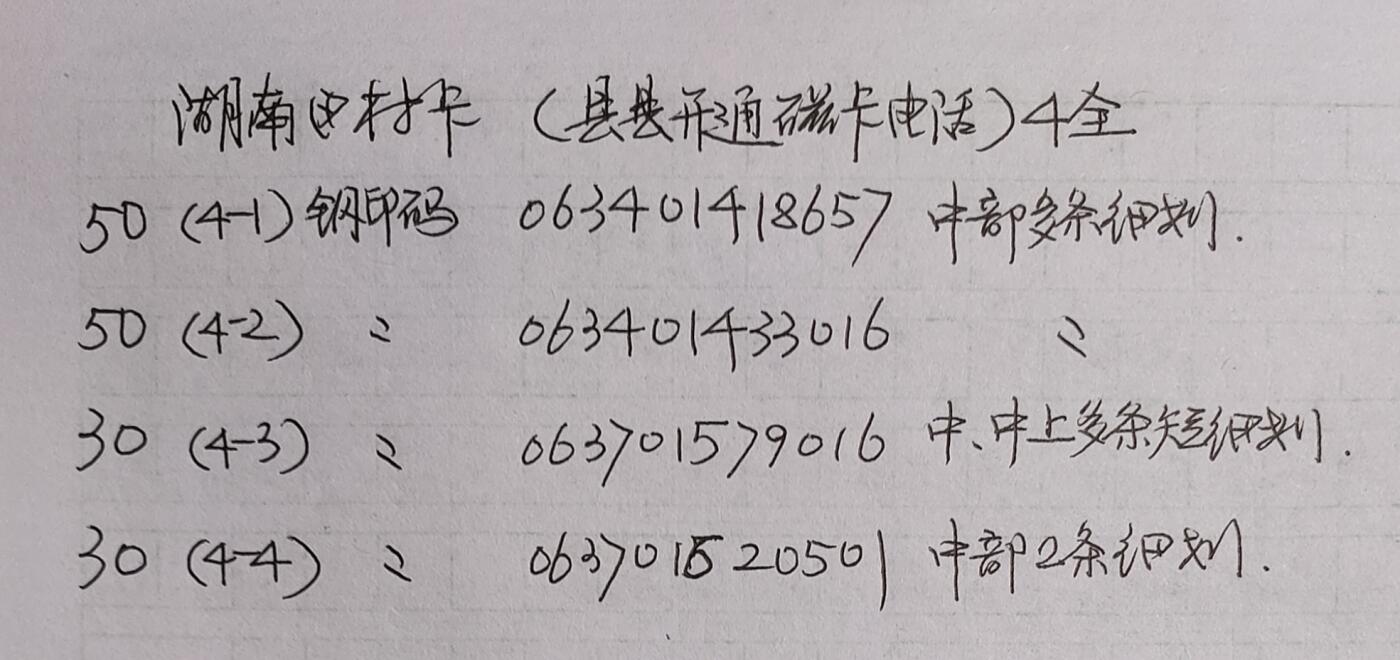 湖南田村卡 (县县开通磁卡电话) 4全
50 (4-1) 钢印码 063401418657 中部多条细划.
50 (4-2) 〻 063401433016 〻
30 (4-3) 〻 063701579016 中、中上多条短细划.
30 (4-4) 〻 063701520501 中部2条细划.